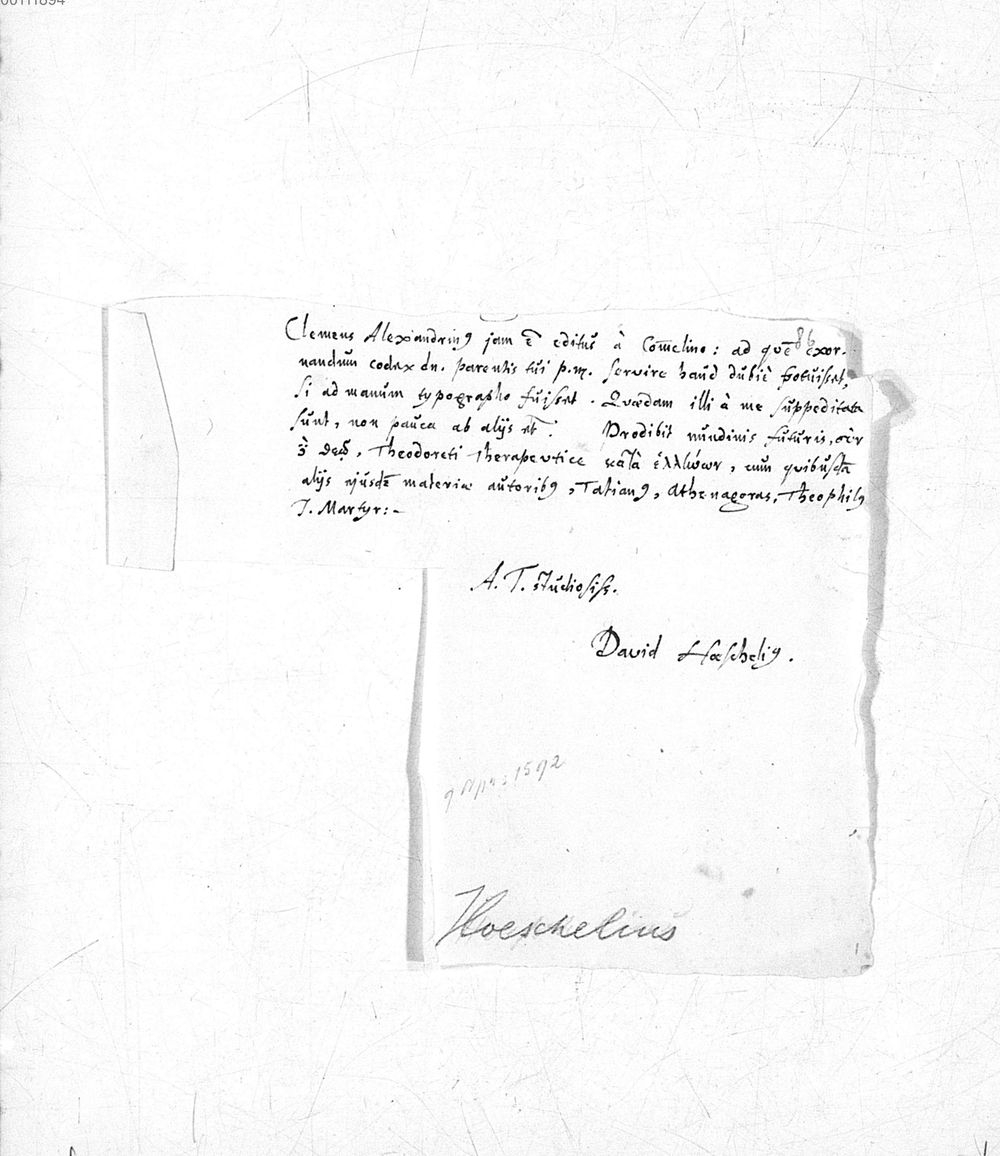 00111894
Clemens Alexandrinꝰ jam ē editus à Com̄elino: ad quē exor-
nandum codex dn. parentis tui p.m. servire haud dubiè potuisset,
si ad manum typographo fuisset. Quædam illi à me suppeditata
sunt, non pauca ab alijs et: Prodibit nundinis futuris, σὺν
Theodoreti Therapeutice κατὰ ἑλλήνων, cum quibusdā
alijs ejusdē materiæ autoribꝰ, Tatianꝰ, Athenagoras, Theophilꝰ
J. Martyr:-
A. T. studiosiss.
David Hœscheliꝰ.
1592
Hoeschelius